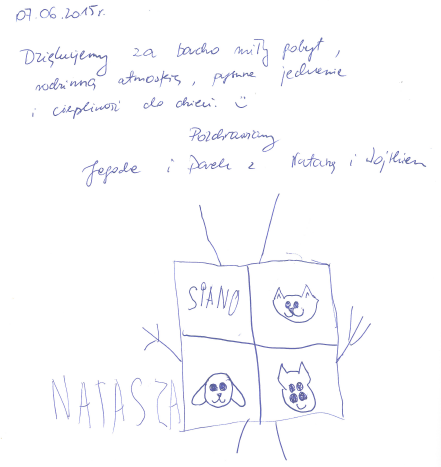 07.06.2015r.
Dziękujemy za bardzo miły pobyt,
rodzinną atmosferę, pyszne jedzenie
i cierpliwość do dzieci. :)
Pozdrawiamy
Jagoda i Darek z Nataszą i Wojtkiem
SIANO
NATASZA